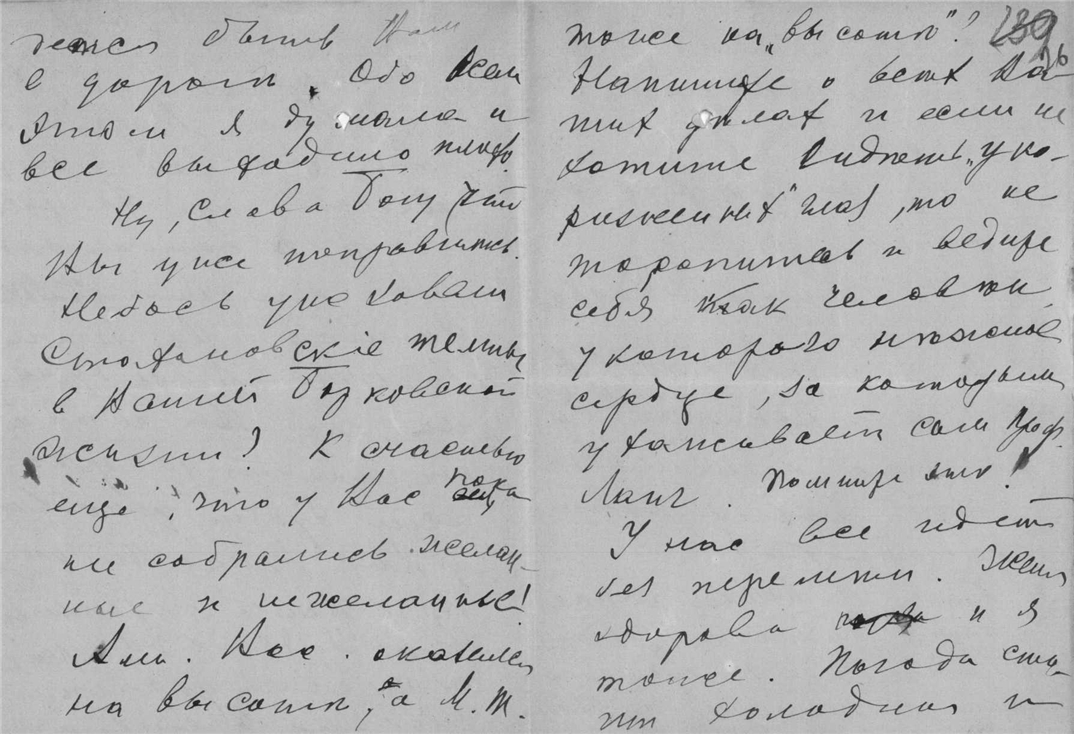 дется быть Вам
в дороге. Обо всем
этом я думала и
все выходило плохо.
Ну, Слава Богу, что
Вы уже поправились.
Небось уже
Стахановскіе темпы
в Вашей Борковской
жизни? К счастью
еще, что у Вас пока
не собрались желан-
ные и нежеланные!
Ал. Вас. оказался
на высоте, а М. Т.
тоже на „высоте"?
Напишите о всех Ва-
ших делах и если не
хотите видеть „уко-
ризненных" глаз, то не
торопитесь и ведите
себя как человек,
у которого нежное
сердце, за которым
ухаживает сам Проф.
Ланг. Помните это!
У нас все идет
без перемен. Женя
здорова и я
тоже. Погода сто-
ит холодная и
239
26